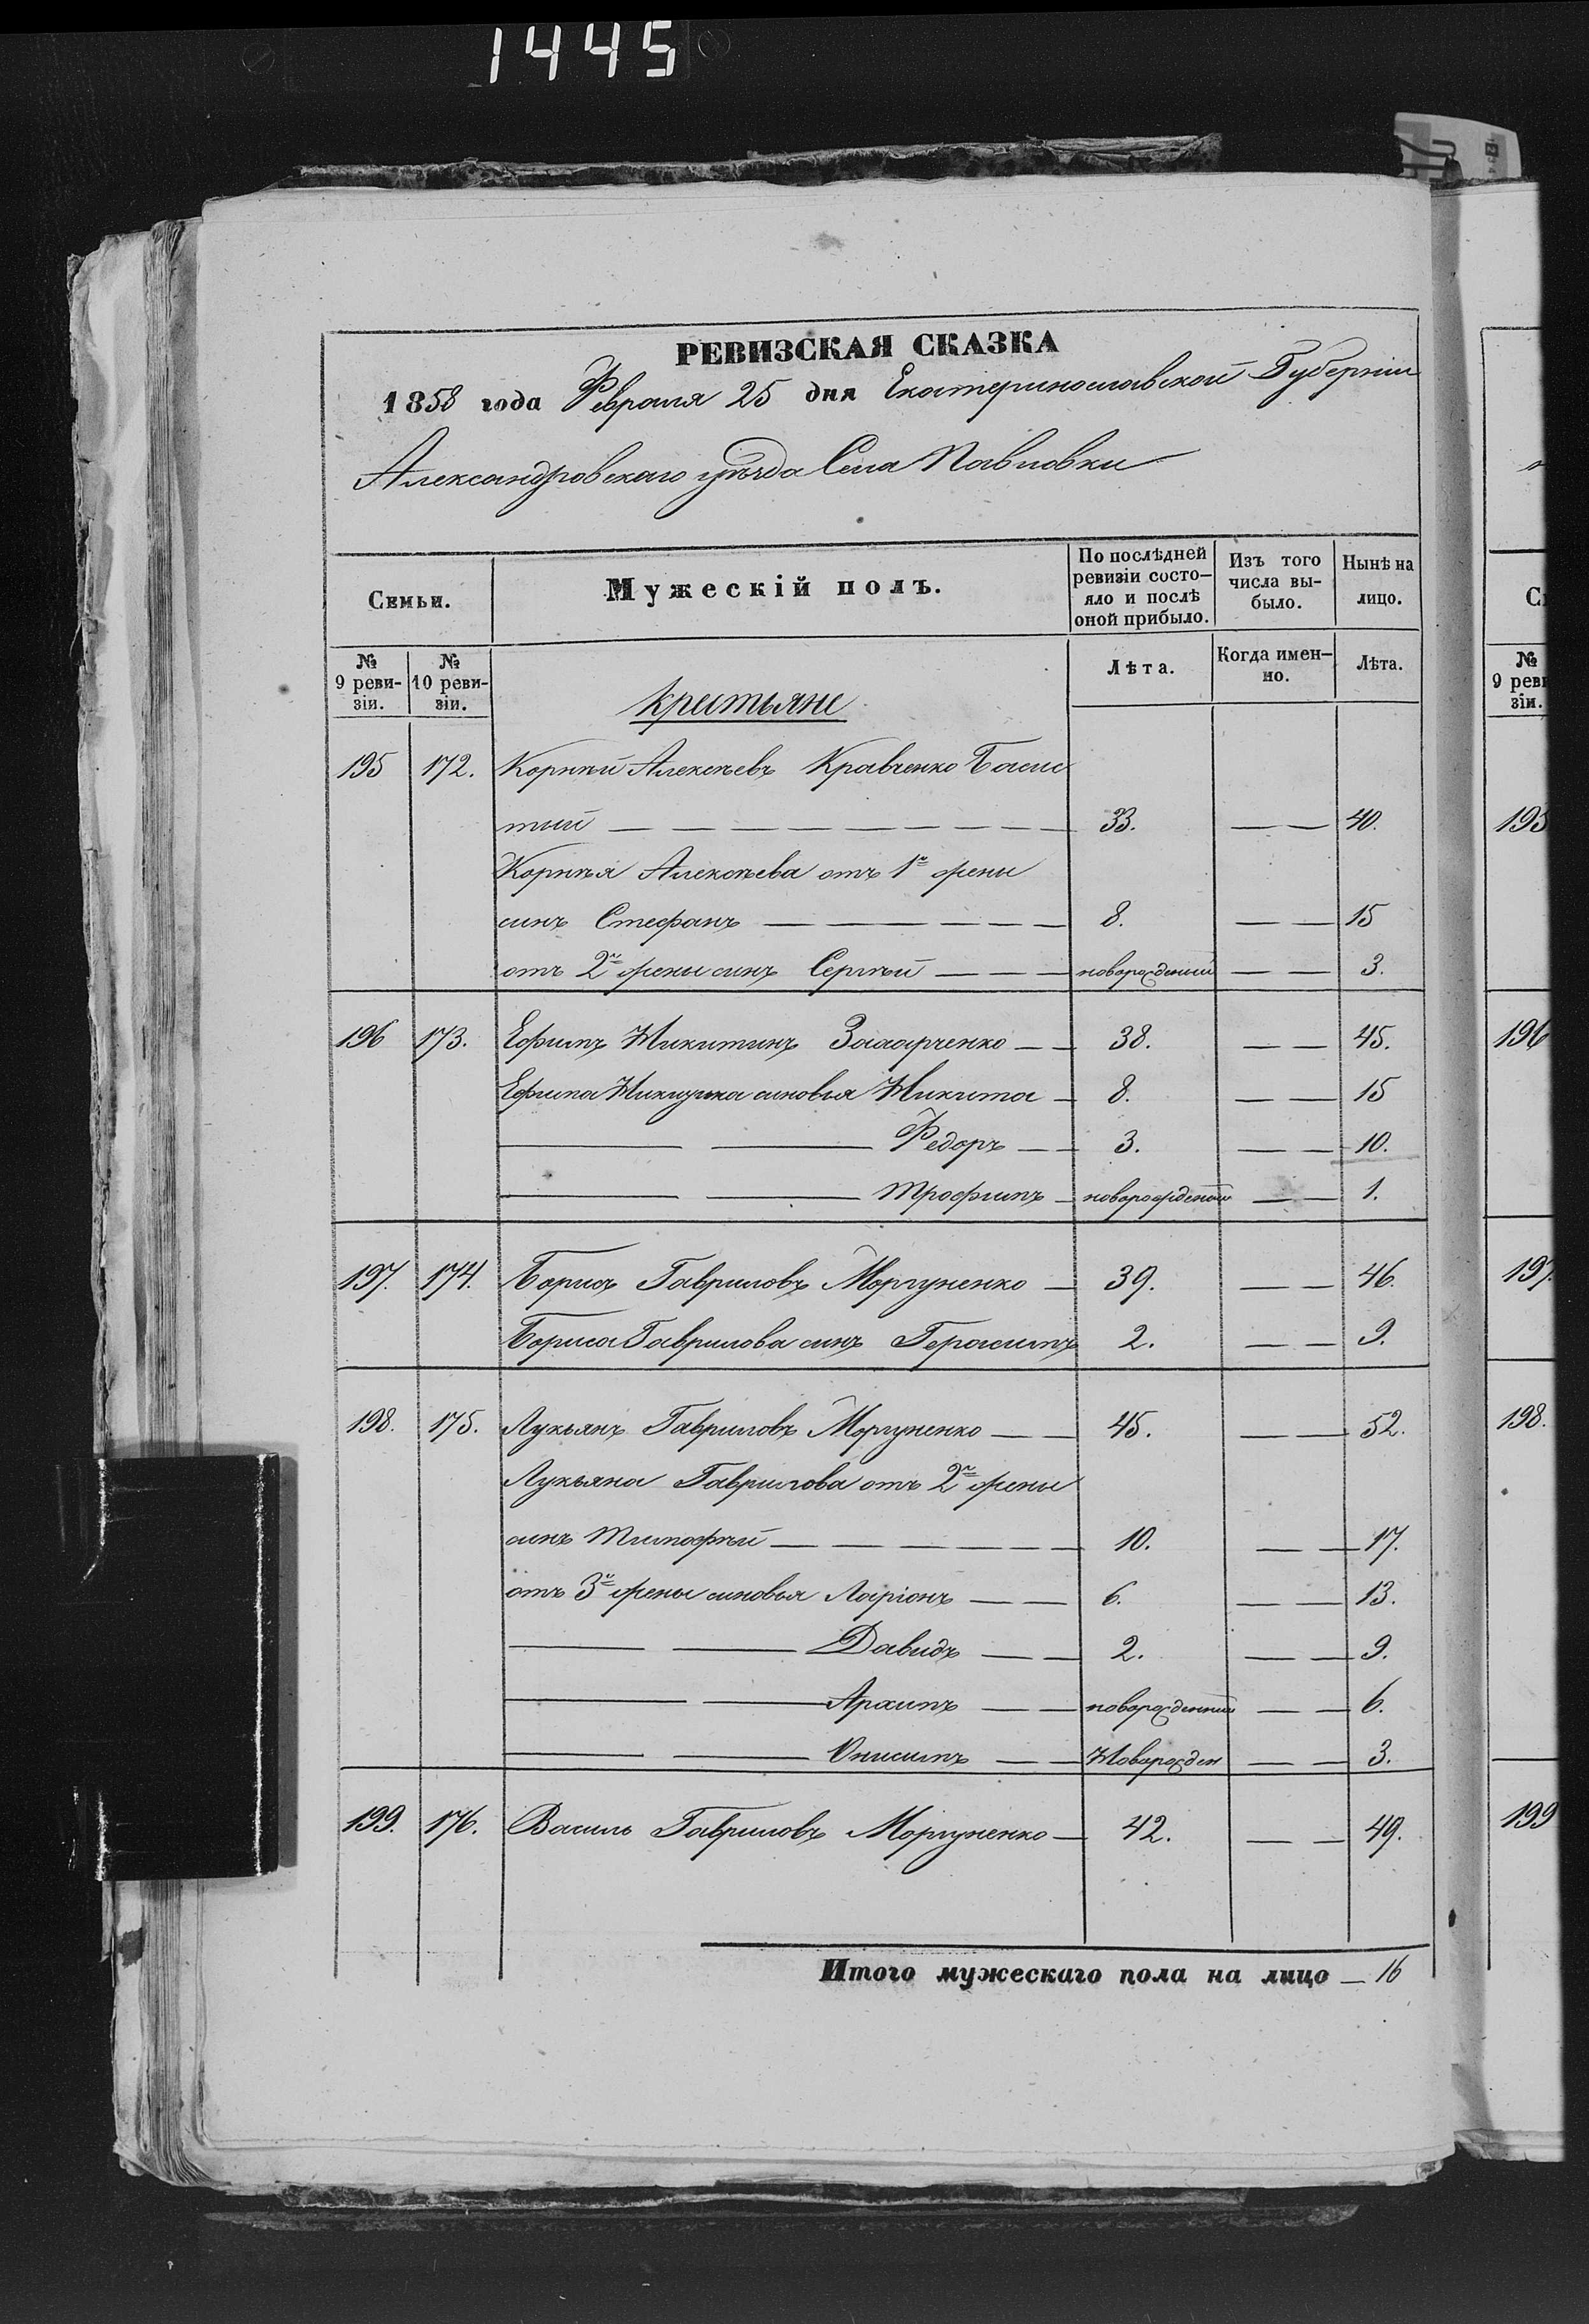 1445
РЕВИЗСКАЯ СКАЗКА
1858 года Февраля 25 дня Екатеринославской Губерніи
Александровскаго уѣзда Села Павловки
Семьи. Мужескій полъ. По послѣдней ревизіи состо- яло и послѣ оной прибыло. Изъ того числа вы- было. Нынѣ на лицо.
№ 9 реви- зіи. № 10 реви- зіи. Лѣта. Когда имен- но. Лѣта.
крестьяне
195 172. Корнѣй Алексѣевъ Кравченко
тий — 33. — 40.
Корнѣя Алексѣева отъ 1й жены
синъ Стефанъ — 8. — 15
отъ 2й жены синъ Сергѣй — новорожденый — 3.
196 173. Ефимъ Никитинъ — 38. — 45.
Ефима синовья Никита — 8. — 15
— Федоръ — 3. — 10.
— Трофимъ — новорожденый — 1.
197. 174. Борисъ Гавриловъ Моргуненко — 39. — 46.
Бориса Гаврилова синъ Герасимъ 2. — 9.
198. 175. Лукьянъ Гавриловъ Моргуненко — 45. — 52.
Лукьяна Гаврилова отъ 2й жены
синъ Тимофѣй — 10. — 17.
отъ 3й жены синовья Ларіонъ — 6. — 13.
— Давидъ — 2. — 9.
— Архипъ — новорожденный — 6.
— Онисимъ — Новорожден — 3.
199. 176. Василь Гавриловъ Моргуненко — 42. — 49.
Итого мужескаго пола на лицо — 16
№ 9 реви зіи.
195
196
197.
198.
199